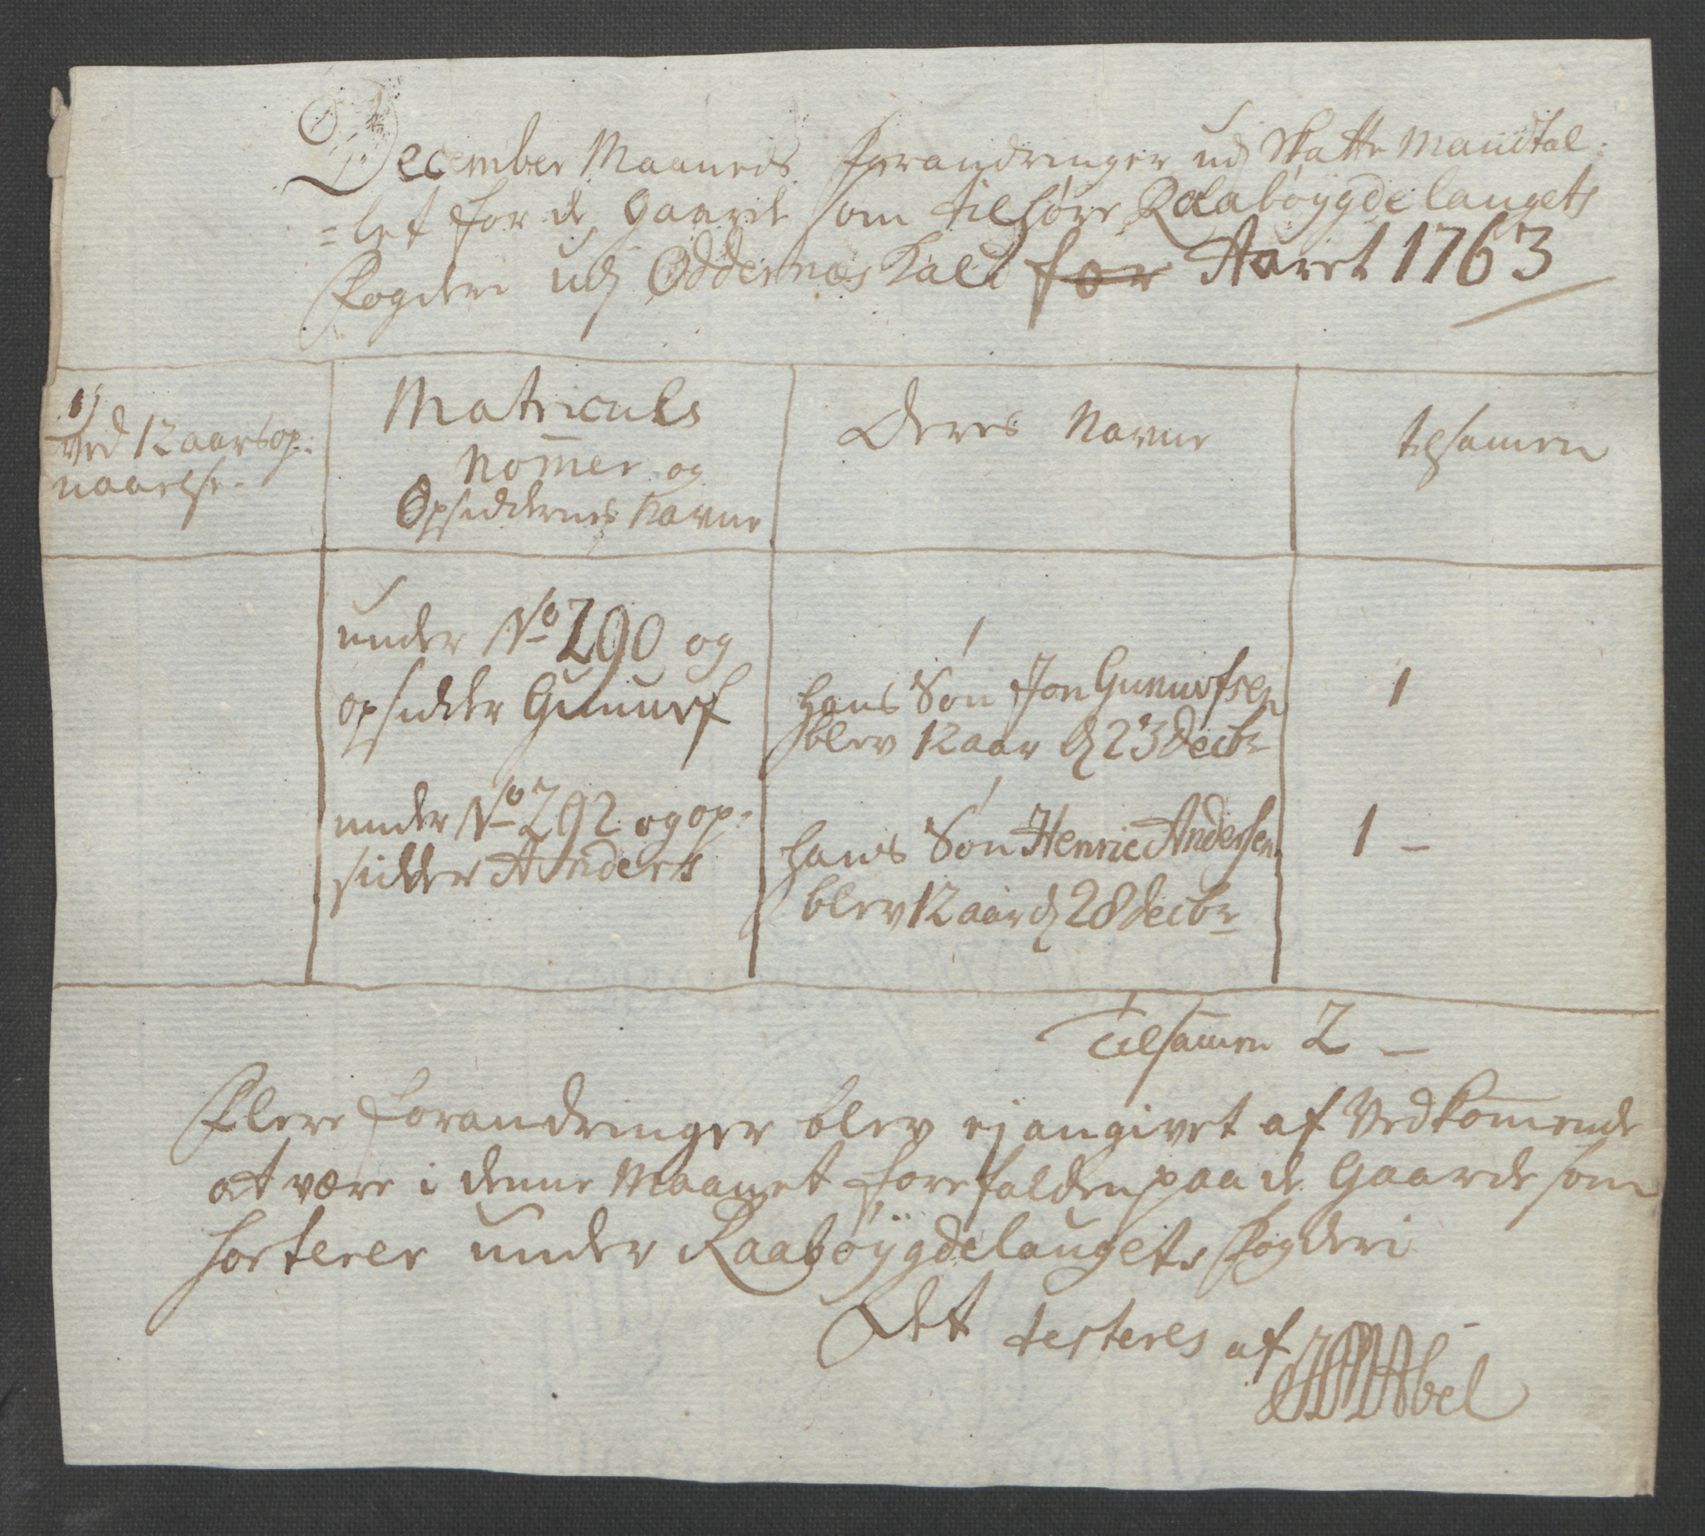 December Maaneds Forandringer udj Skatte Mandtal:
=let for de Gaarde som tilhøre Raabøygdelaugets
Fogderi udj Oddernæs Kald for Aaret 1763
1)
ved 12 aars op:
naaelse.
Matriculs
Nom̄er og
Opsiddernes Navne
Deres Navne
tilsamen
under No 290 og
opsidder Gunuvf
1
hans Søn Jon Gunuvfsen
blev 12 aar d 23 decbr
1
under No 292 og op:
sidder Anders
1
hans Søn Henric Andersen
blev 12 aar d 28 decbr
1 –
Tilsam̄en 2 –
Flere forandringer blev ej angivet af Vedkom̄ende
at være i denne Maanet forefalden paa de Gaarde som
sorterer under Raabøygdelaugets Fogderi
Det testeres af
Abel